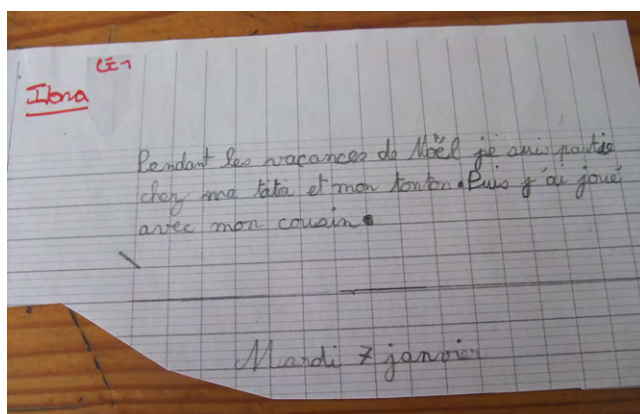 CE1
Ibra
Pendant les vacances de Noël je suis partie
chez ma tata et mon tonton. Puis j'ai joué
avec mon cousin.
Mardi 7 janvier